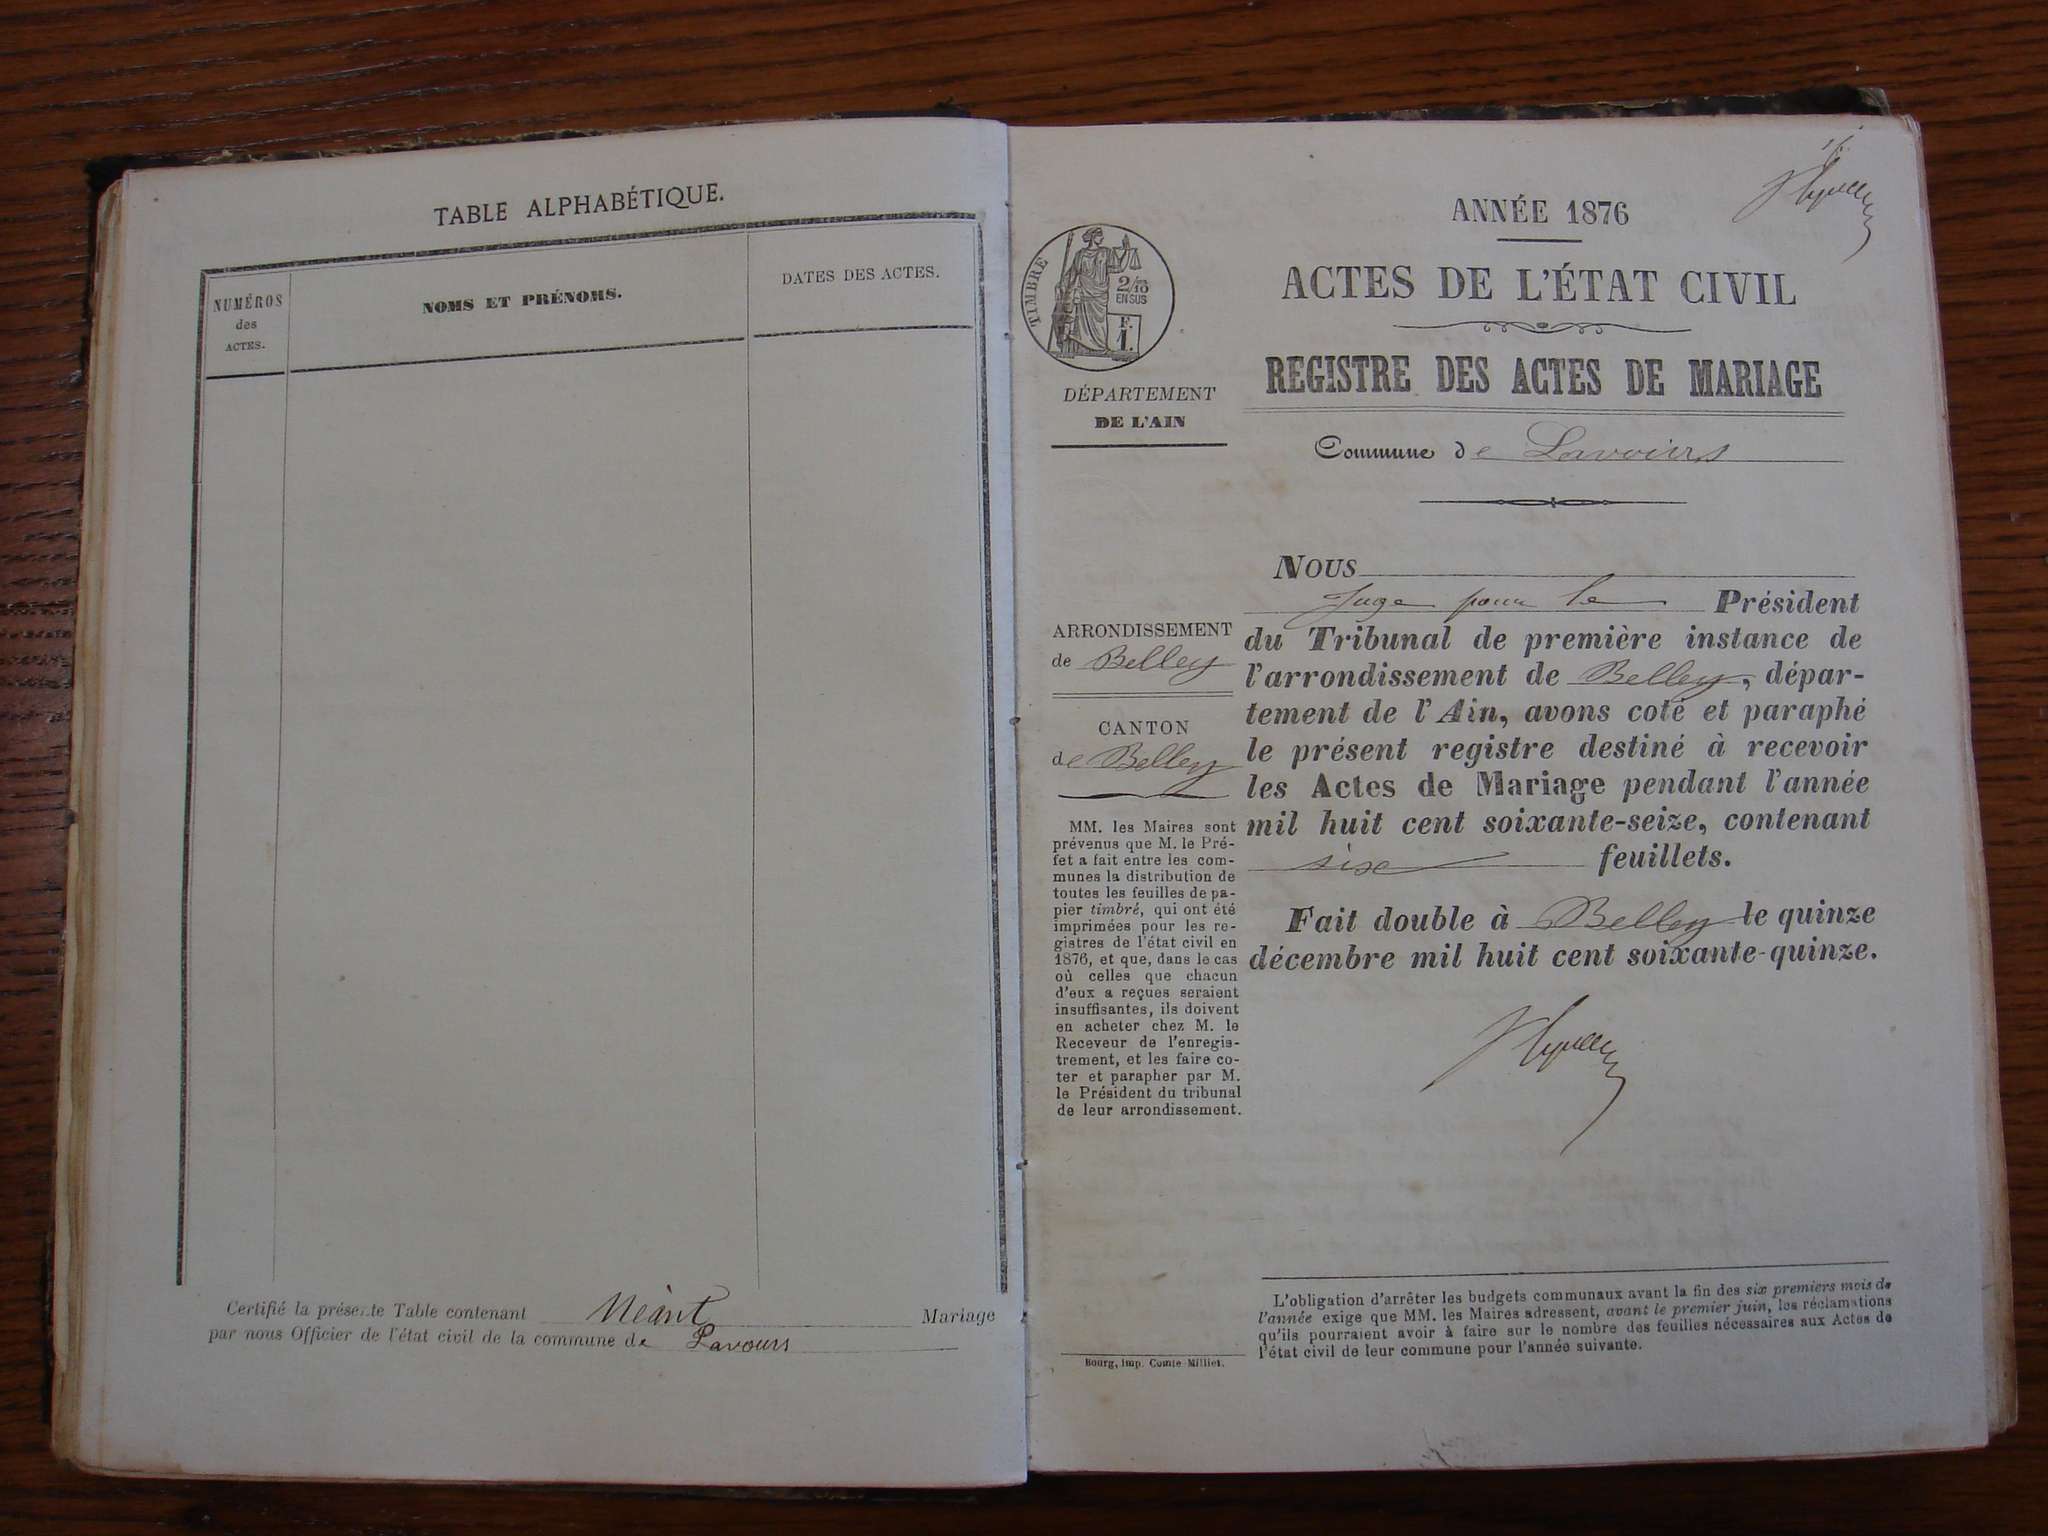 TABLE ALPHABÉTIQUE.
NUMÉROS
des
ACTES.
NOMS ET PRÉNOMS.
DATES DES ACTES.
Certifié la présente Table contenant Néant Mariage
par nous Officier de l'état civil de la commune de Lavours
ANNÉE 1876
TIMBRE
2/10
EN SUS
F.
1.
ACTES DE L'ÉTAT CIVIL
REGISTRE DES ACTES DE MARIAGE
DÉPARTEMENT
DE L'AIN
Commune de Lavours
ARRONDISSEMENT
de Belley
CANTON
de Belley
MM. les Maires sont
prévenus que M. le Pré-
fet a fait entre les com-
munes la distribution de
toutes les feuilles de pa-
pier timbré, qui ont été
imprimées pour les re-
gistres de l'état civil en
1876, et que, dans le cas
où celles que chacun
d'eux a reçues seraient
insuffisantes, ils doivent
en acheter chez M. le
Receveur de l'enregis-
trement, et les faire co-
ter et parapher par M.
le Président du tribunal
de leur arrondissement.
NOUS
Juge pour le Président
du Tribunal de première instance de
l'arrondissement de Belley, dépar-
tement de l'Ain, avons coté et paraphé
le présent registre destiné à recevoir
les Actes de Mariage pendant l'année
mil huit cent soixante-seize, contenant
six feuillets.
Fait double à Belley le quinze
décembre mil huit cent soixante-quinze.
L'obligation d'arrêter les budgets communaux avant la fin des six premiers mois de
l'année exige que MM. les Maires adressent, avant le premier juin, les réclamations
qu'ils pourraient avoir à faire sur le nombre des feuilles nécessaires aux Actes de
l'état civil de leur commune pour l'année suivante.
Bourg, imp. Comte-Milliet.